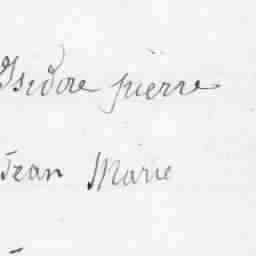 Isidore pierre
Jean Marie